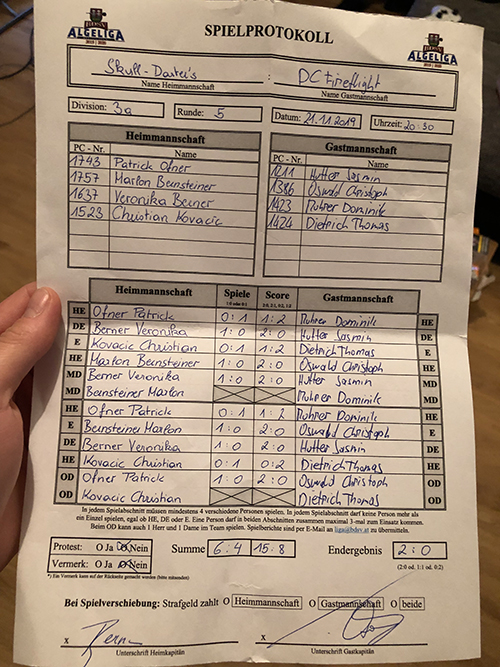 ALGELIGA
2019 | 2020
SPIELPROTOKOLL
ALGELIGA
2019 | 2020
Skull-Darter's : DC Firefight
Name Heimmannschaft Name Gastmannschaft
Division: 3a Runde: 5 Datum: 21.11.2019 Uhrzeit: 20:30
Heimmannschaft Gastmannschaft
PC - Nr. Name PC - Nr. Name
1743 Patrick Ofner 1211 Hutter Jasmin
1757 Marton Beinsteiner 1386 Oswald Christoph
1637 Veronika Berner 1423 Rohrer Dominik
1523 Christian Kovacic 1424 Dietrich Thomas
Heimmannschaft Spiele Score Gastmannschaft
1:0 oder 0:1 2:0, 2:1, 0:2, 1:2
HE Ofner Patrick 0:1 1:2 Rohrer Dominik HE
DE Berner Veronika 1:0 2:0 Hutter Jasmin DE
E Kovacic Christian 0:1 1:2 Dietrich Thomas E
HE Marton Beinsteiner 1:0 2:0 Oswald Christoph HE
MD Berner Veronika 1:0 2:0 Hutter Jasmin MD
MD Beinsteiner Marton Rohrer Dominik MD
HE Ofner Patrick 0:1 1:2 Rohrer Dominik HE
E Beinsteiner Marton 1:0 2:0 Oswald Christoph E
DE Berner Veronika 1:0 2:0 Hutter Jasmin DE
HE Kovacic Christian 0:1 0:2 Dietrich Thomas HE
OD Ofner Patrick 1:0 2:0 Oswald Christoph OD
OD Kovacic Christian Dietrich Thomas OD
In jedem Spielabschnitt müssen mindestens 4 verschiedene Personen spielen. In jedem Spielabschnitt darf keine Person mehr als
ein Einzel spielen, egal ob HE, DE oder E. Eine Person darf in beiden Abschnitten zusammen maximal 3-mal zum Einsatz kommen.
Beim OD kann auch 1 Herr und 1 Dame im Team spielen. Spielberichte sind per E-Mail an liga@bdsv.at zu übermitteln.
Protest: O Ja O Nein Summe 6:4 15:8 Endergebnis 2:0
Vermerk: O Ja O Nein (2:0 od. 1:1 od. 0:2)
*) Ein Vermerk kann auf der Rückseite gemacht werden (bitte umseiten)
Bei Spielverschiebung: Strafgeld zahlt O Heimmannschaft O Gastmannschaft O beide
x x
Unterschrift Heimkapitän Unterschrift Gastkapitän